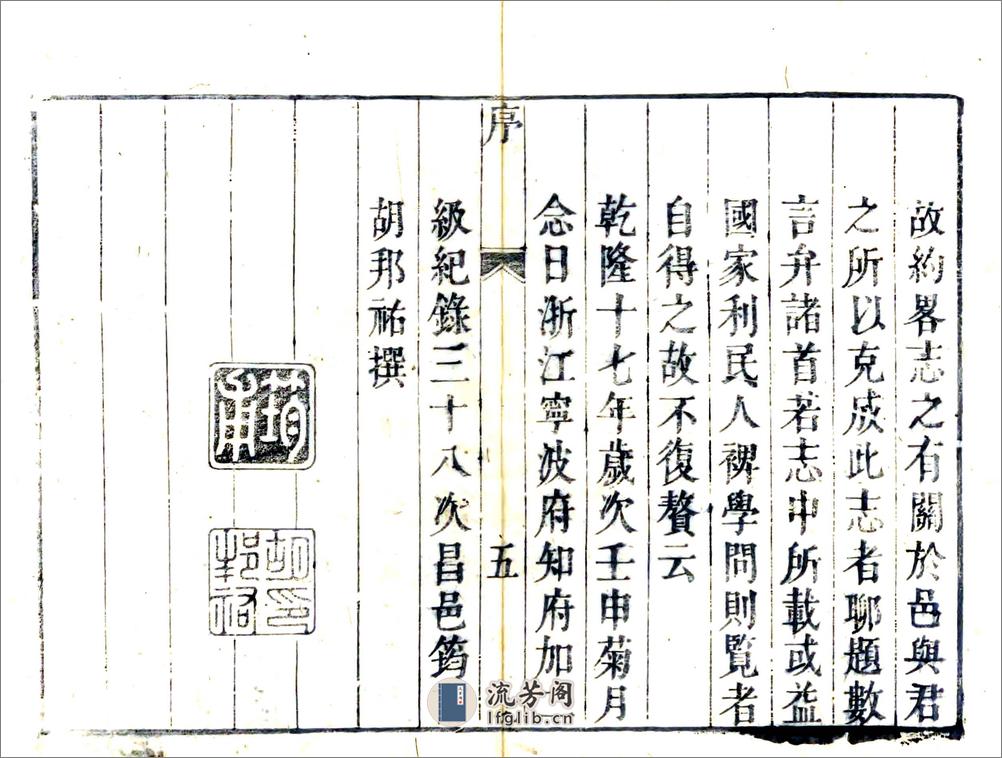 故約畧志之有關於邑與君
之所以克成此志者聊題數
言弁諸首若志中所載或益
國家利民人裨學問則覽者
自得之故不復贅云
乾隆十七年歲次壬申菊月
念日浙江寧波府知府加
序 五
級紀錄三十八次昌邑筠
胡邦祐撰
胡印邦祐
流芳阁
lfglib.cn